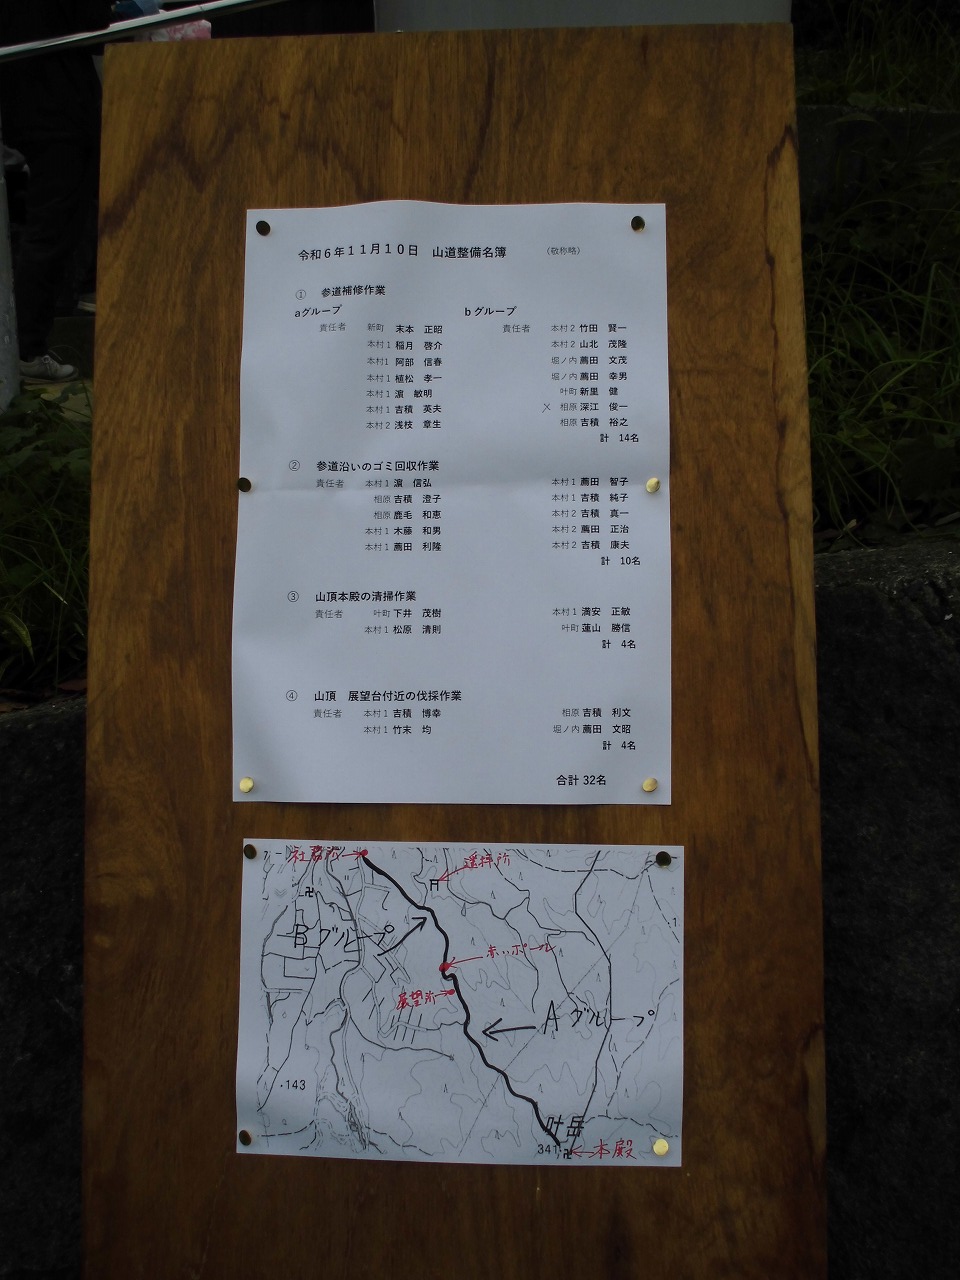 令和６年１１月１０日　山道整備名簿　（敬称略）
①　参道補修作業
aグループ　b グループ
責任者　新町　末本　正昭　責任者　本村２　竹田　賢一
本村１　稲月　啓介　本村２　山北　茂隆
本村１　阿部　信春　堀ノ内　薦田　文茂
本村１　植松　孝一　堀ノ内　薦田　幸男
本村１　濵　敏明　叶町　新里　健
本村１　吉積　英夫　╳　相原　深江　俊一
本村２　浅枝　章生　相原　吉積　裕之
計　14名
②　参道沿いのゴミ回収作業
責任者　本村１　濵　信弘　本村１　薦田　智子
相原　吉積　澄子　本村１　吉積　純子
相原　鹿毛　和恵　本村２　吉積　真一
本村１　木藤　和男　本村２　薦田　正治
本村１　薦田　利隆　本村２　吉積　康夫
計　10名
③　山頂本殿の清掃作業
責任者　叶町　下井　茂樹　本村１　満安　正敏
本村１　松原　清則　叶町　蓮山　勝信
計　4名
④　山頂　展望台付近の伐採作業
責任者　本村１　吉積　博幸　相原　吉積　利文
本村１　竹末　均　堀ノ内　薦田　文昭
計　4名
合計 32名
社務所
遥拝所
Bグループ
赤いポール
展望所
Aグループ
・143
叶岳
341
本殿